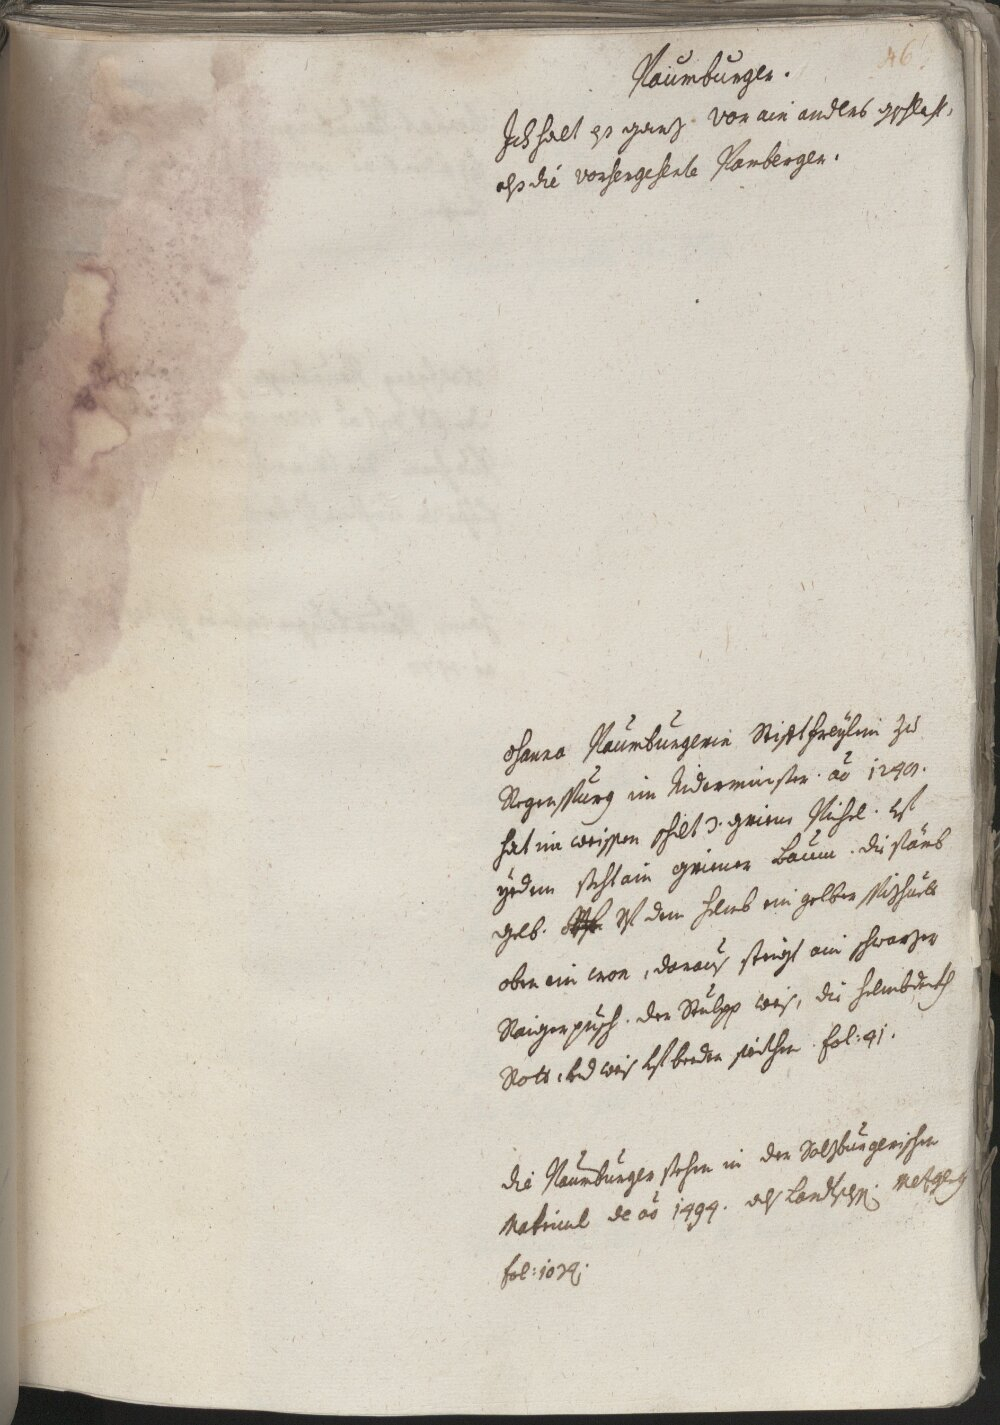 46.
Naumburger.
Ich halt es gantz vor ain anders geschlecht,
alß die vorhergehente Namberger.
Hanna Naumburgerin Stifftfreylin zu
Regenspurg im Nidermünster. aõ 1290.
hat im weissen schilt 3. griene Pichel. auf
yedem steht ain griener Baum. die stämb
gelb. Auf dem helmb ein gelber spizhuet
oben ein cron, daraus steigt ain schwarzer
Raigerpusch. der Stulpp weis, die helmbdeckh
Roth, und weis auf beeden seithen. fol: 41.
die Naumburger stehen in der Salzburgerischen
Matricul de aõ 1494. als Landtsess.